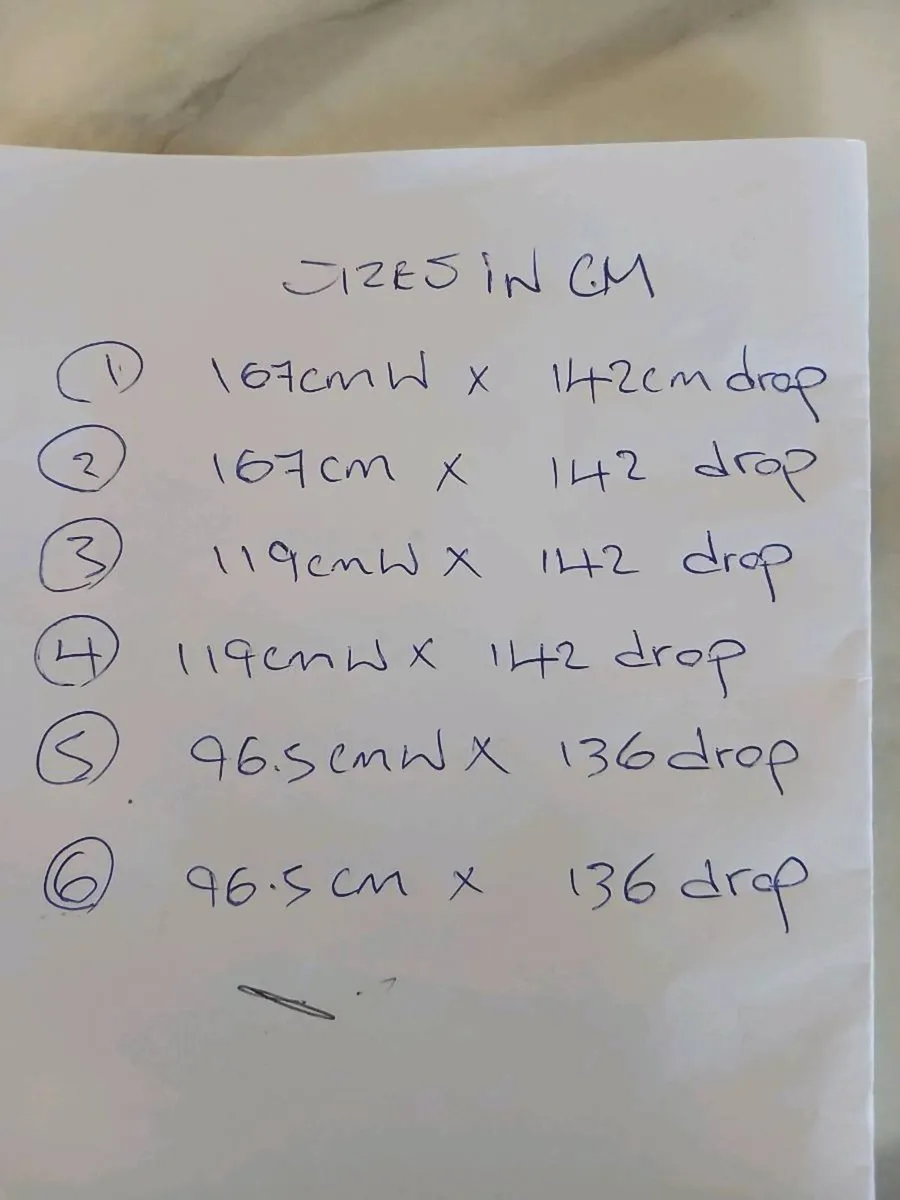 SIZES IN CM
① 167cmW x 142cm drop
② 167cm x 142 drop
③ 119cmW x 142 drop
④ 119cmW x 142 drop
⑤ 96.5cmW x 136 drop
⑥ 96.5cm x 136 drop